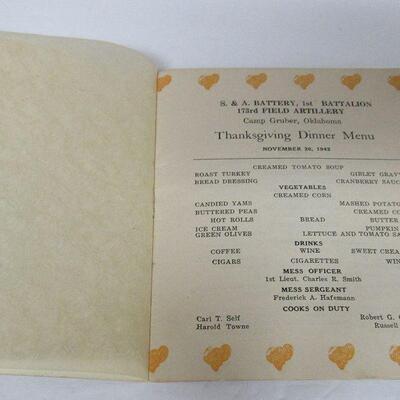 S. & A. BATTERY, 1st BATTALION
173rd FIELD ARTILLERY
Camp Gruber, Oklahoma
Thanksgiving Dinner Menu
NOVEMBER 26, 1942
CREAMED TOMATO SOUP
ROAST TURKEY GIBLET GRAVY
BREAD DRESSING CRANBERRY SAUC
VEGETABLES
CREAMED CORN
CANDIED YAMS MASHED POTATO
BUTTERED PEAS CREAMED CO
HOT ROLLS BREAD BUTTER
ICE CREAM PUMPKIN
GREEN OLIVES LETTUCE AND TOMATO SA
DRINKS
COFFEE WINE SWEET CREA
CIGARS CIGARETTES WIN
MESS OFFICER
1st Lieut. Charles R. Smith
MESS SERGEANT
Frederick A. Hafemann
COOKS ON DUTY
Carl T. Self Robert G.
Harold Towne Russell